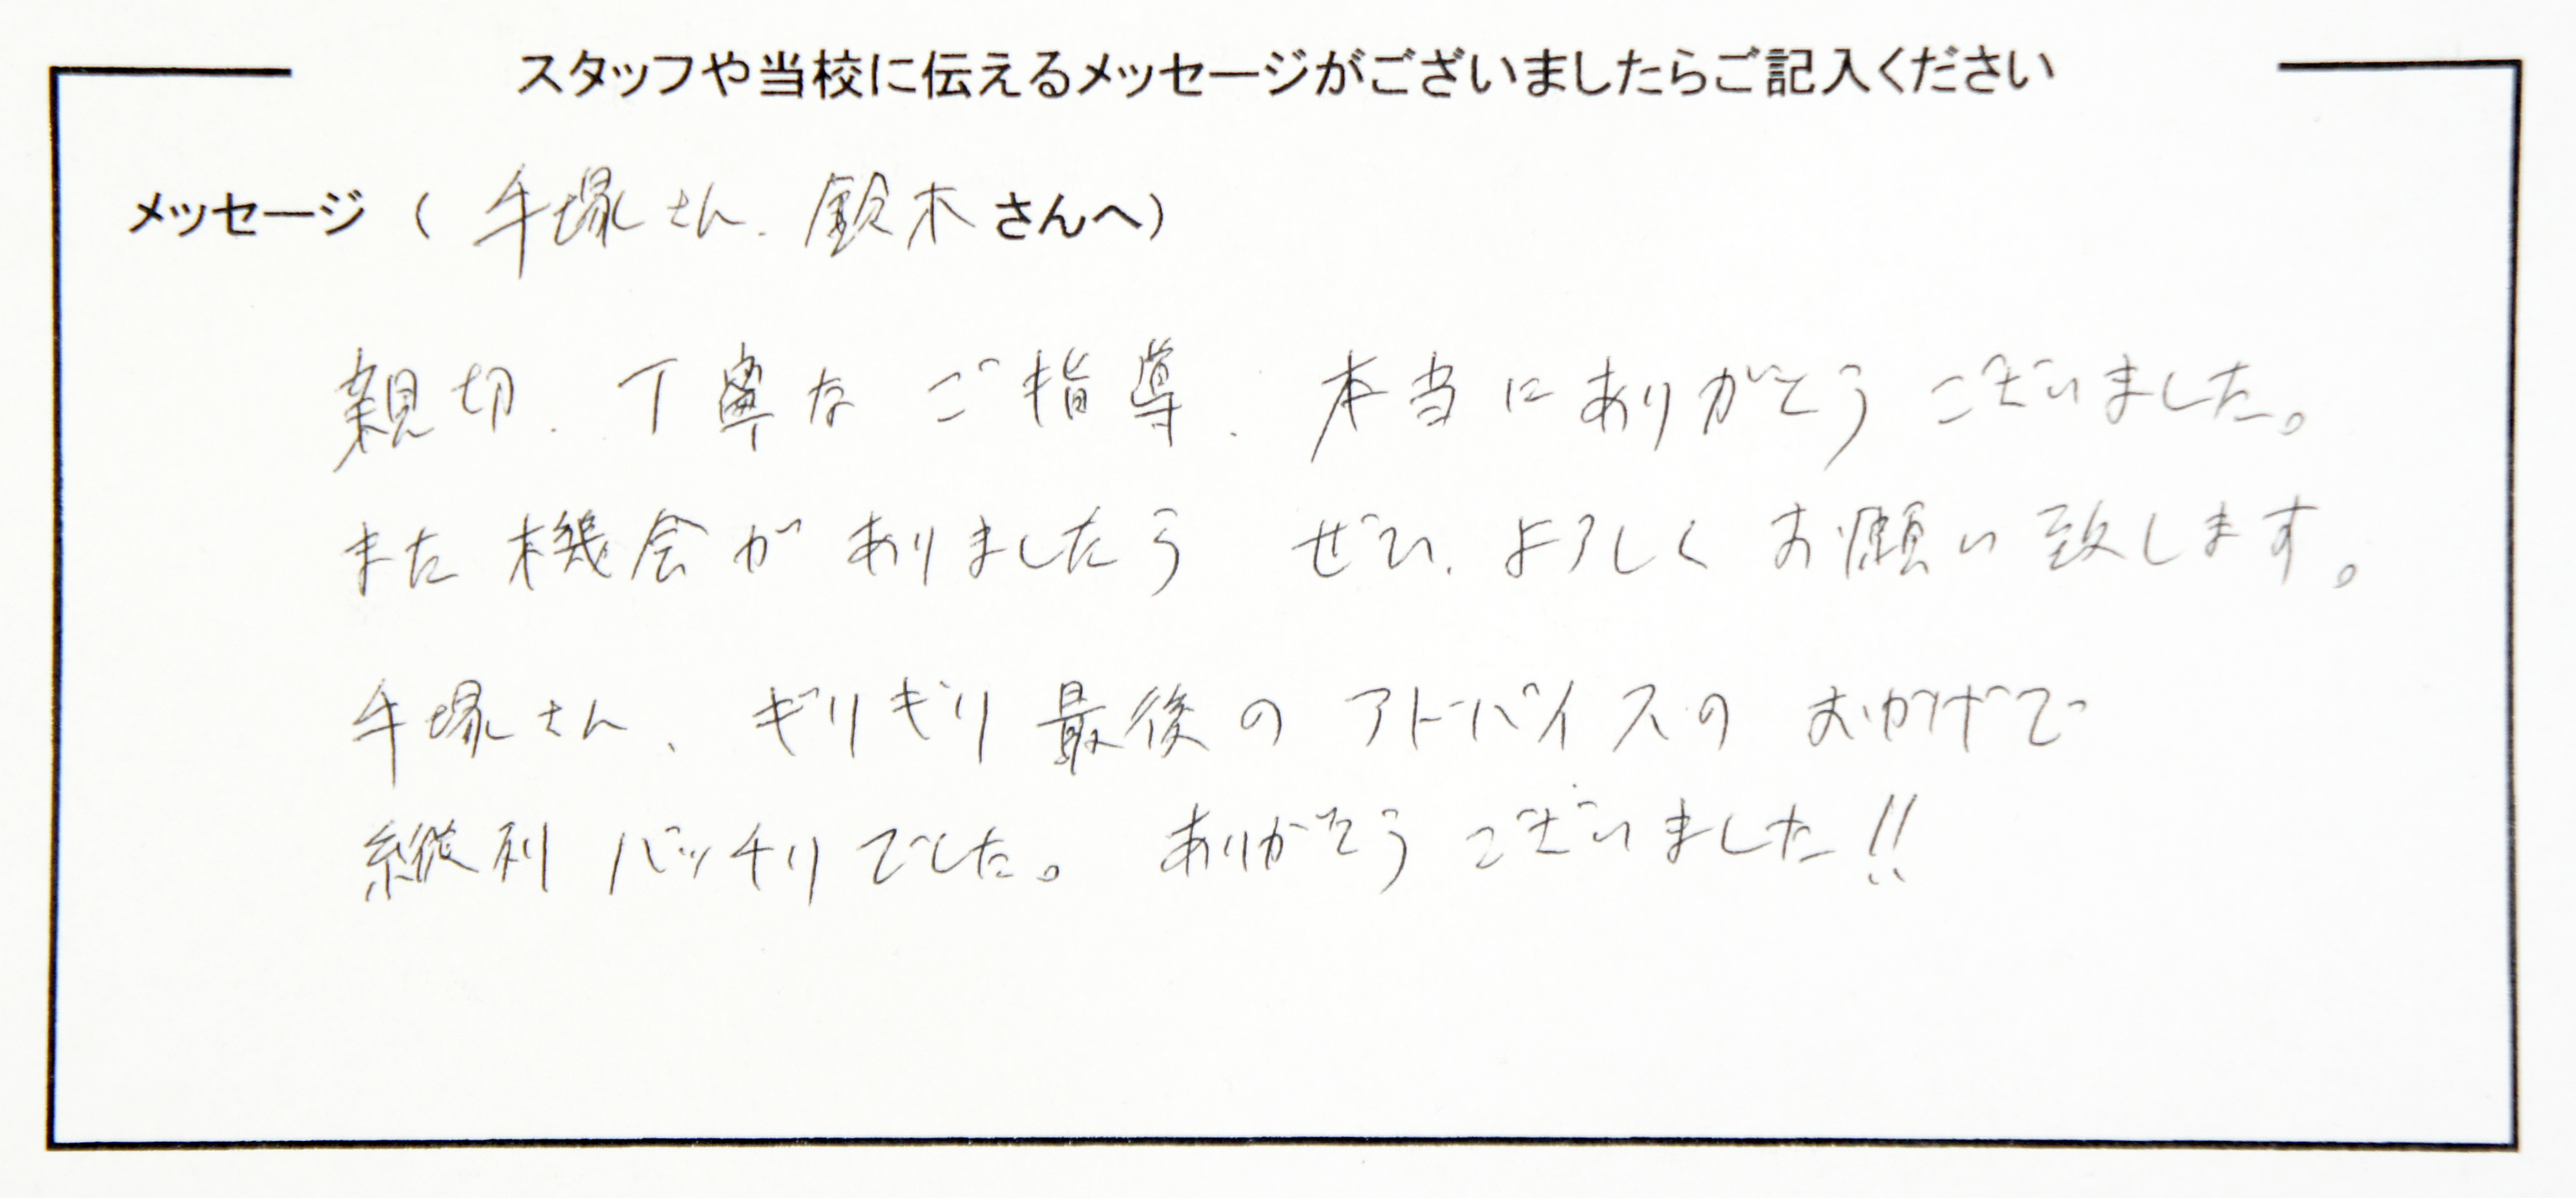 スタッフや当校に伝えるメッセージがございましたらご記入ください
メッセージ（ 手塚さん、鈴木さんへ）
親切、丁寧なご指導、本当にありがとうございました。
また機会がありましたら ぜひ、よろしくお願い致します。
手塚さん、ギリギリ最後のアドバイスのおかげで
縦列バッチリでした。ありがとうございました!!